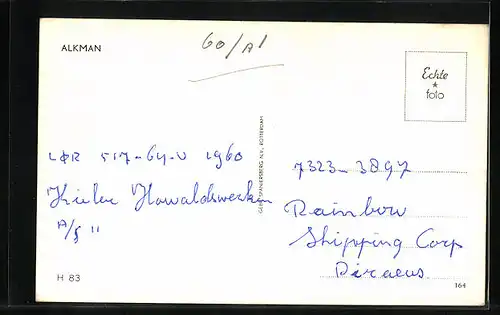 ALKMAN
60/A1
Echte
*
foto
LΦR 517-64-0 1960
Kieler Howaldswerken
A/S "
GEBR. SPANJERSBERG N.V., ROTTERDAM
7323-3897
Rainbow
Shipping Corp
Piraeus
H 83
164